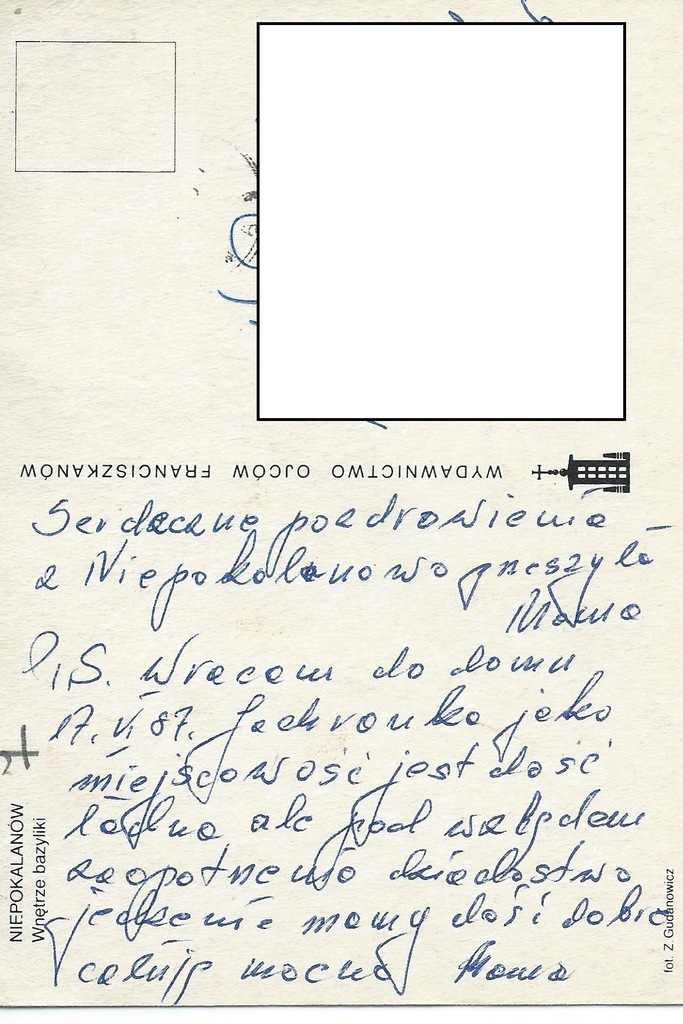 WYDAWNICTWO OJCÓW FRANCISZKANÓW
Serdeczne pozdrowienia
z Niepokalanowa przesyła
Mama
P.S. Wracam do domu
17.VI 87. Jachranka jako
miejscowość jest dość
ładna ale pod względem
zaopatrzenia dziadostwo
jedzenie mamy dość dobre
całuję mocno Mama
NIEPOKALANÓW
Wnętrze bazyliki
fot. Z Gudanowicz